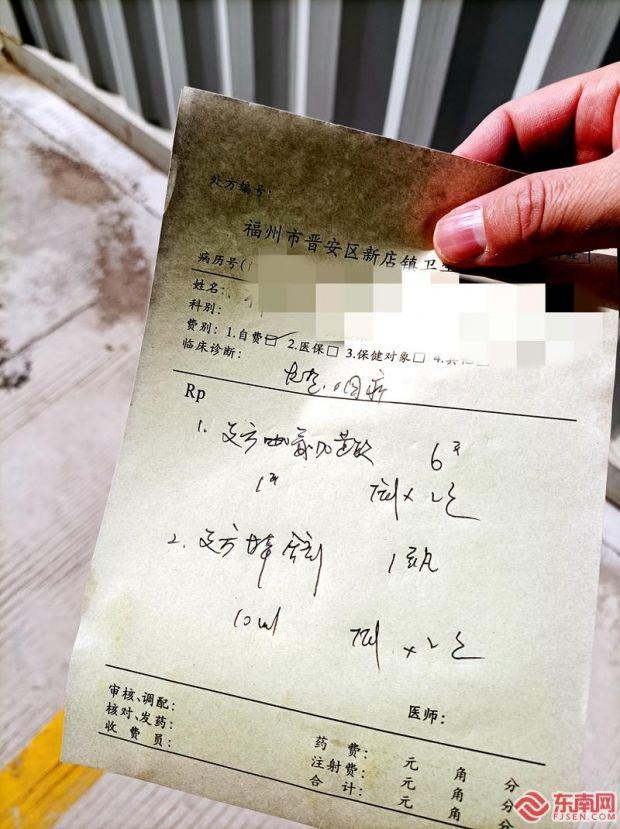 处方编号:
福州市晋安区新店镇卫生
病历号(
姓名:
科别:
费别: 1.自费☑ 2.医保□ 3.保健对象□ 4.其他□
临床诊断:
咽痛
Rp
1. 复方 6
1 tid × 2
2. 复方 1瓶
10ml tid × 2
审核、调配: 医师:
核对、发药: 药 费: 元 角 分
收 费 员: 注射费: 元 角 分
合 计: 元 角 分
东南网
FJSEN.COM